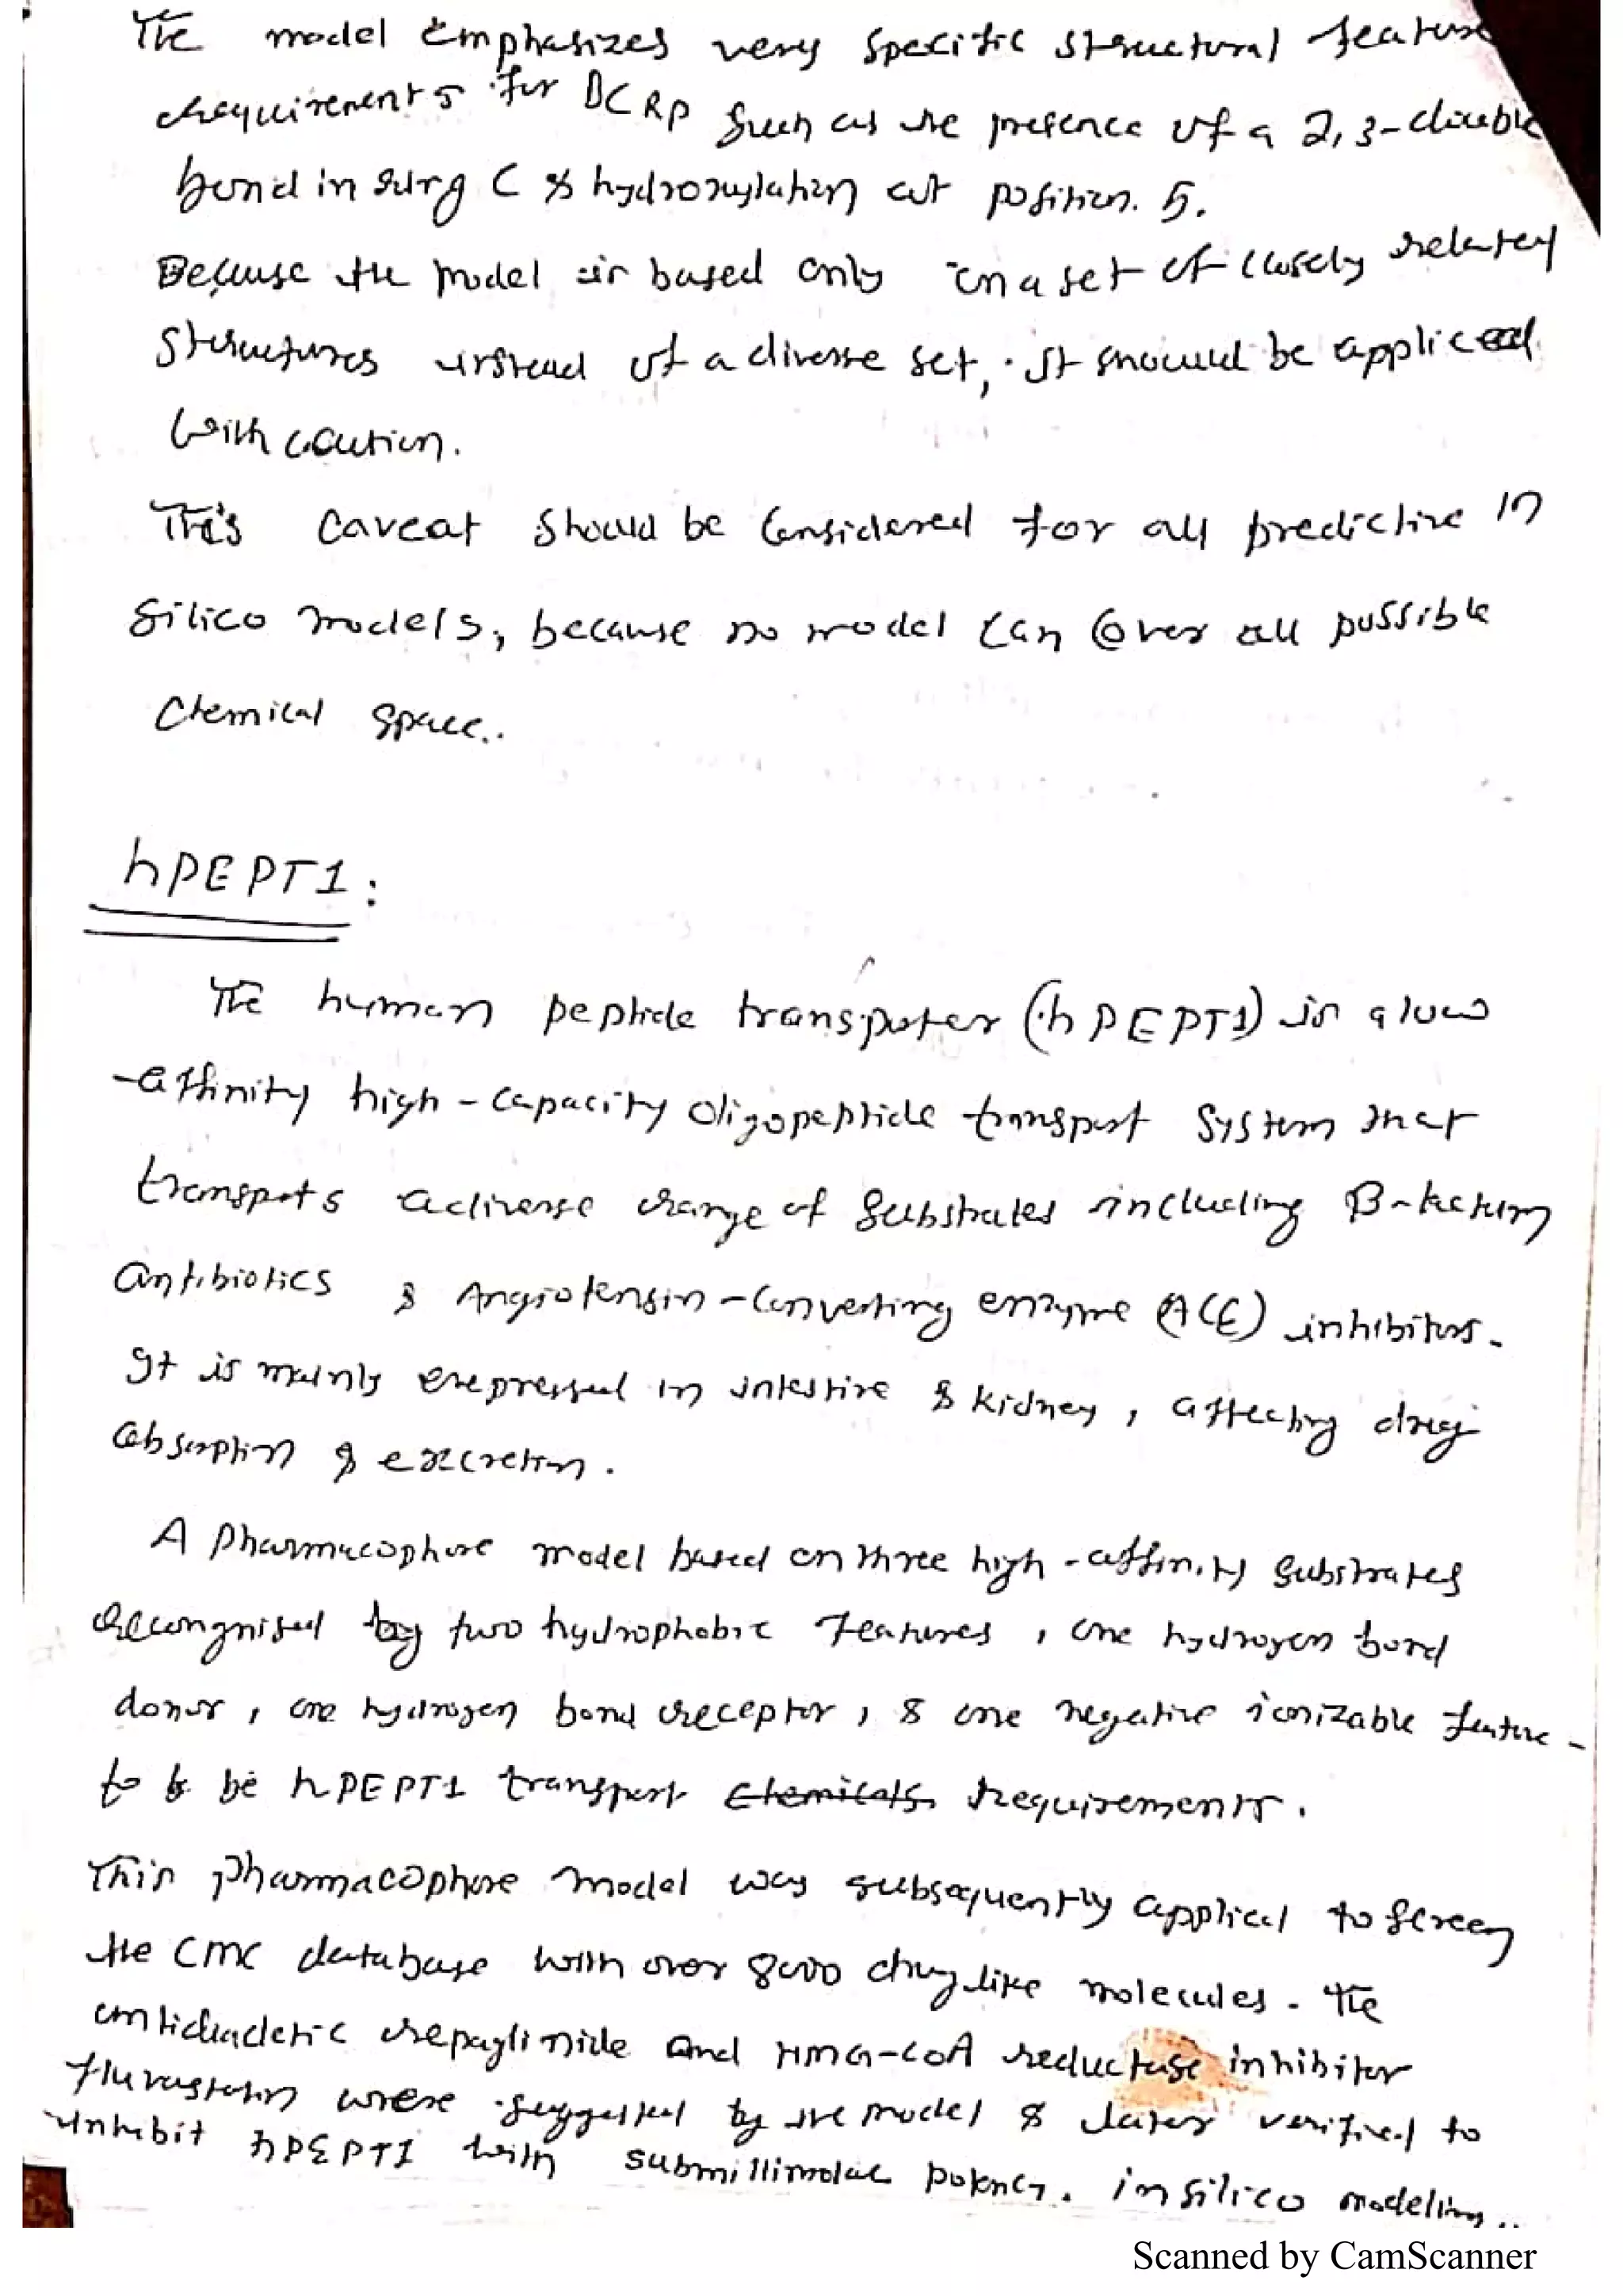 The model emphasizes very specific structural feature
requirements for BCRP such as the presence of a 2,3-double
bond in ring C & hydroxylation at position 5.
Because the model is based only on a set of closely related
structures instead of a diverse set, it should be applied
with caution.
This caveat should be considered for all predictive in
silico models, because no model can cover all possible
chemical space..
hPEPT1:
The human peptide transporter (hPEPT1) is a low
-affinity high-capacity oligopeptide transport system that
transports a diverse range of substrates including β-lactam
antibiotics & Angiotensin-converting enzyme (ACE) inhibitors.
It is mainly expressed in intestine & kidney, affecting drug
absorption & excretion.
A pharmacophore model based on three high-affinity substrates
recongnised by two hydrophobic features, one hydrogen bond
donor, one hydrogen bond receptor, & one negative ionizable feature -
to be hPEPT1 transport chemicals requirements.
This pharmacophore model was subsequently applied to screen
the CMC database with over 8000 drug like molecules. The
antidiadetic repaglinide and HMG-COA reductase inhibitor
fluvastatin were suggested by the model & later verified to
inhibit hPEPT1 with submillimolar potency. in silico modeling..
Scanned by CamScanner